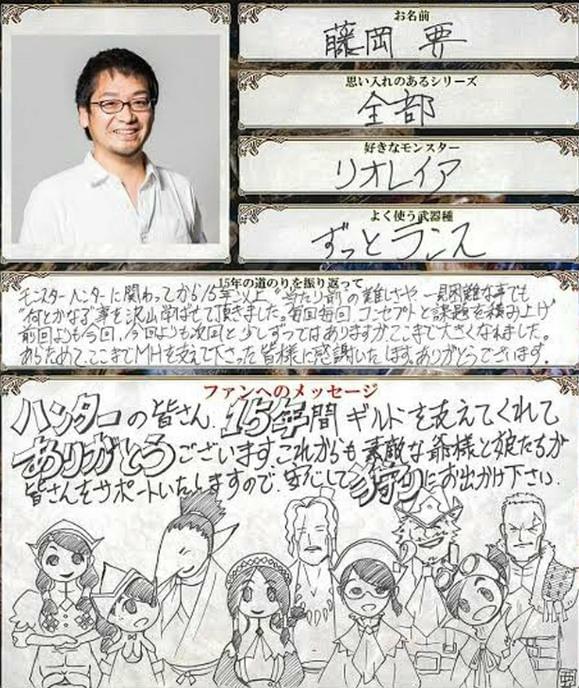 お名前
藤岡 要
思い入れのあるシリーズ
全部
好きなモンスター
リオレイア
よく使う武器種
ずっとランス
15年の道のりを振り返って
モンスターハンターに関わってから15年以上"当たり前"の難しさや、一見困難な事でも
"何とかなる"事を沢山学ばせて頂きました。毎回毎回、コンセプトと課題を積み上げ
前回よりも今回、今回よりも次回と少しずつではありますが、ここまで大きくなれました。
あらためて、ここまでMHを支えて下さった皆様に感謝いたします。ありがとうございます。
ファンへのメッセージ
ハンターの皆さん、15年間ギルドを支えてくれて
ありがとうございます。これからも素敵な爺様と娘たちが
皆さんをサポートいたしますので、安心して狩りにお出かけ下さい。
要